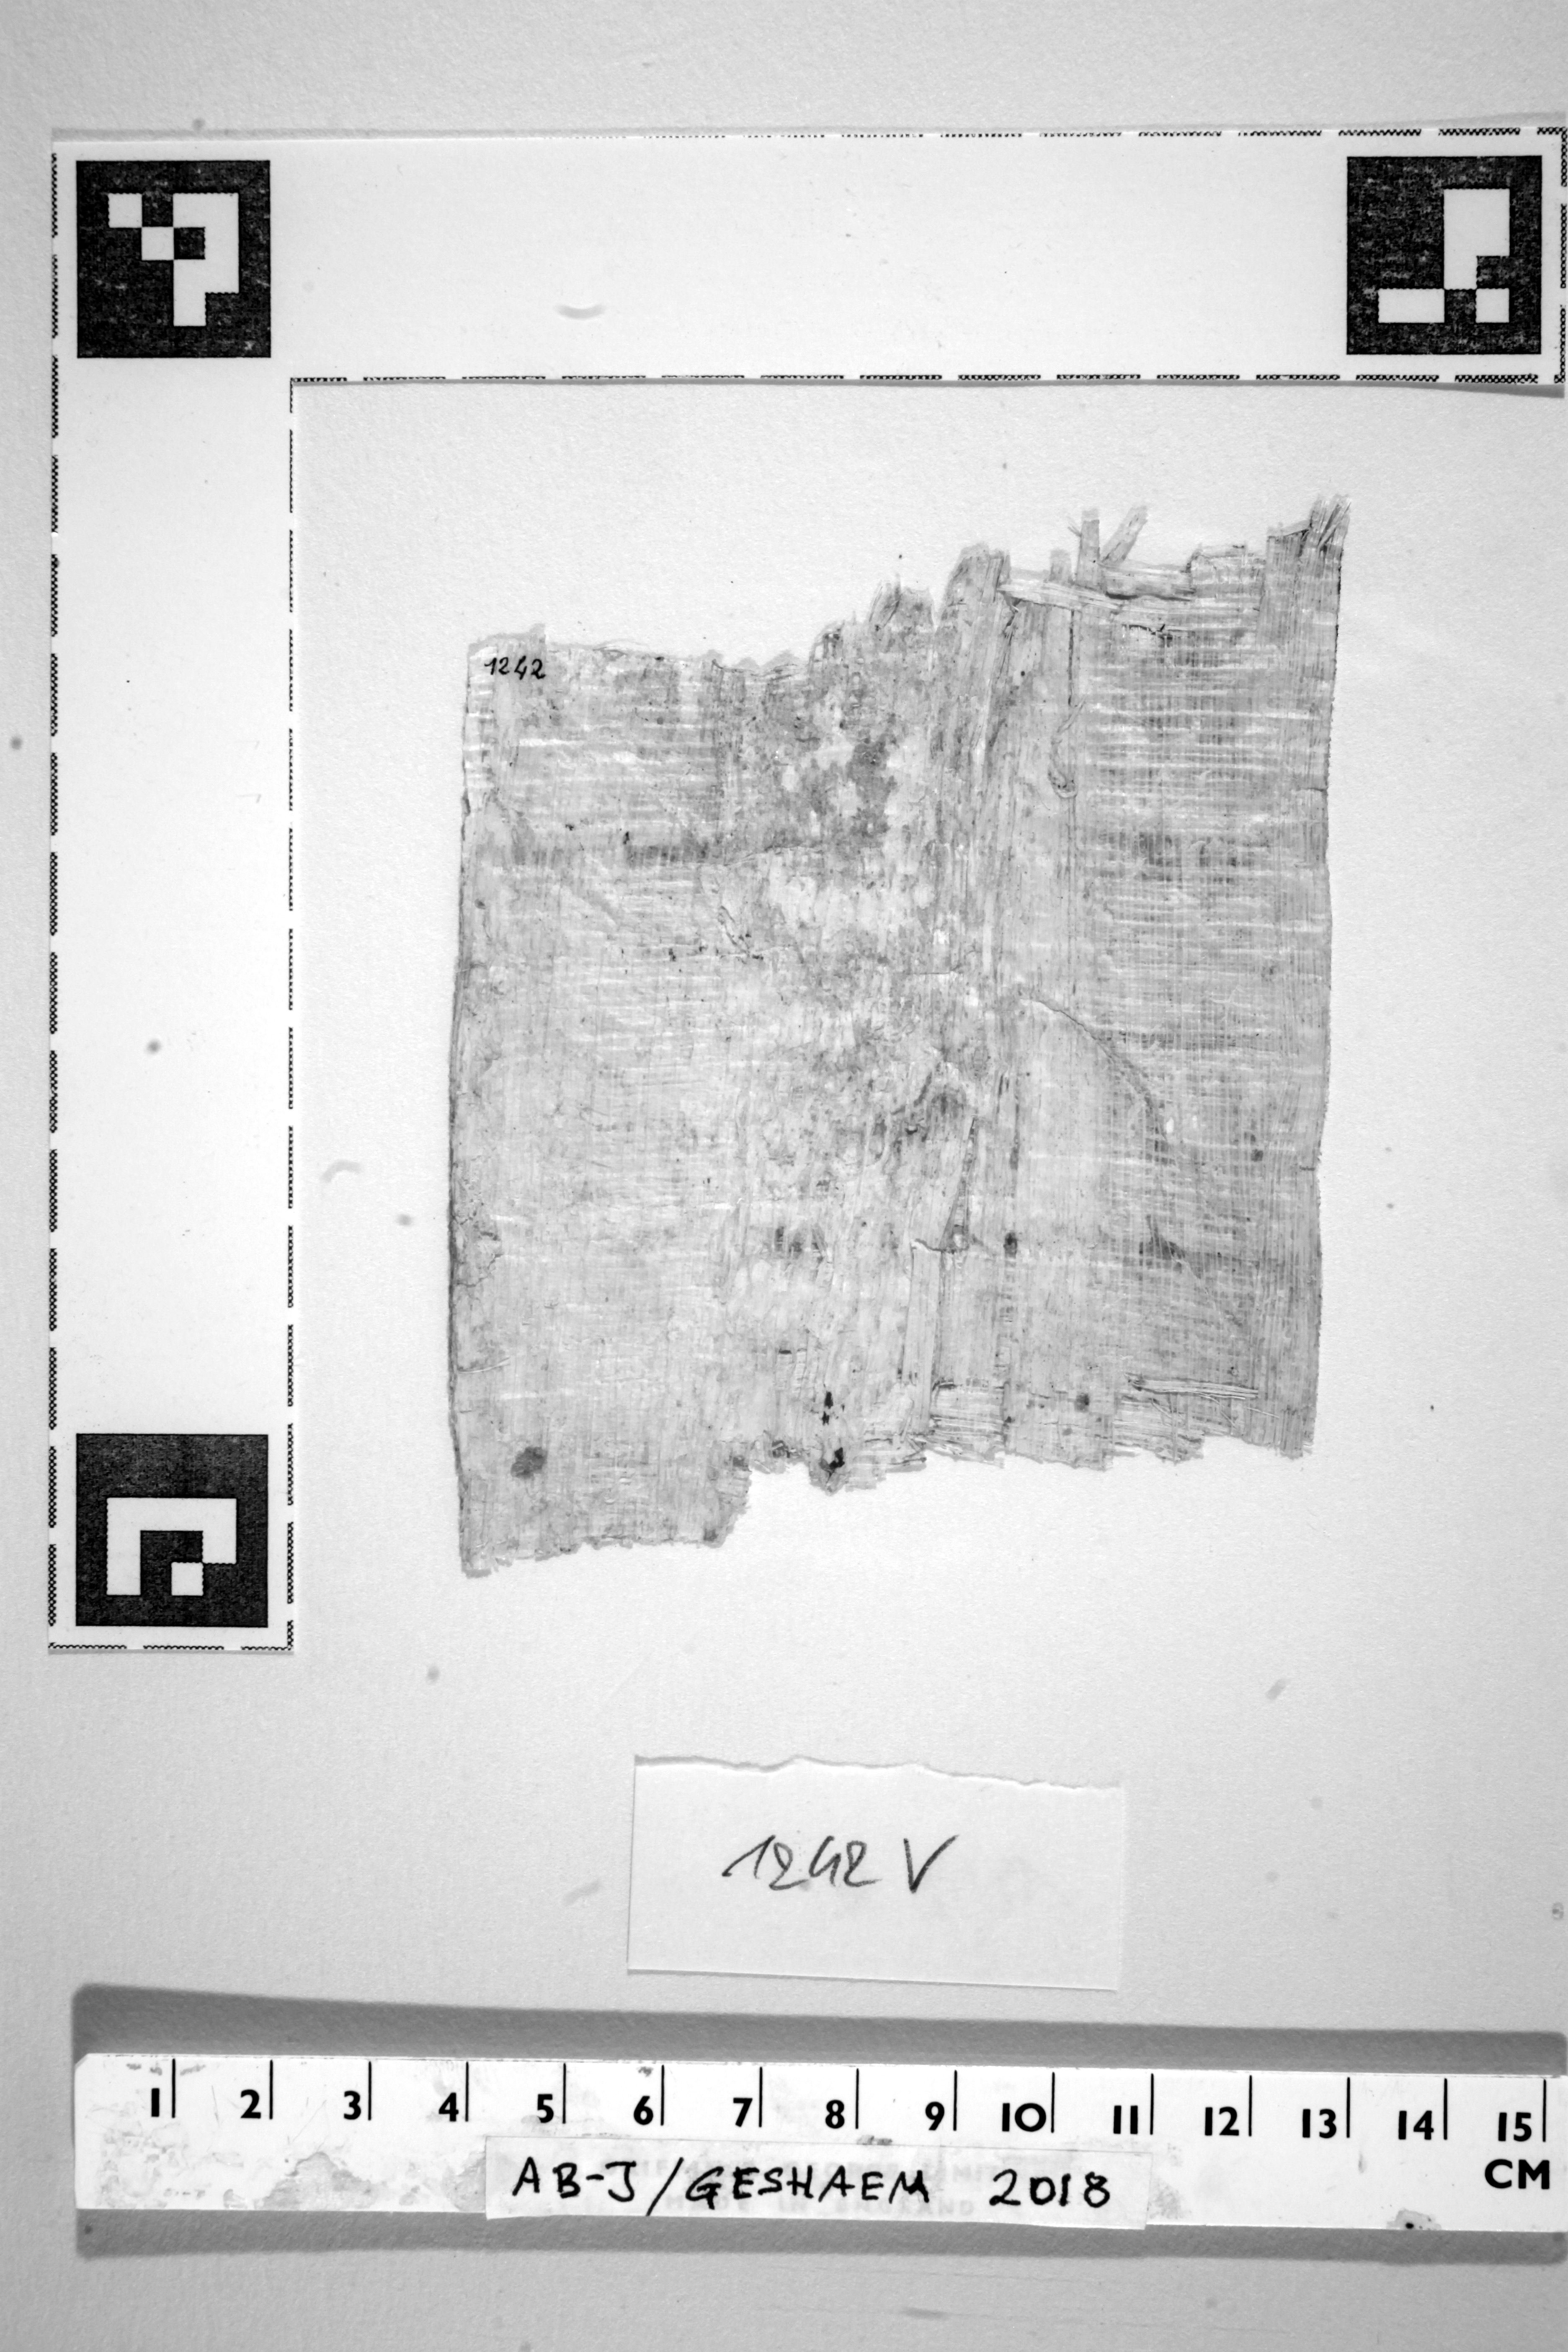 1242
1242 V
1 2 3 4 5 6 7 8 9 10 11 12 13 14 15
CM
AB-J/GESHAEM 2018